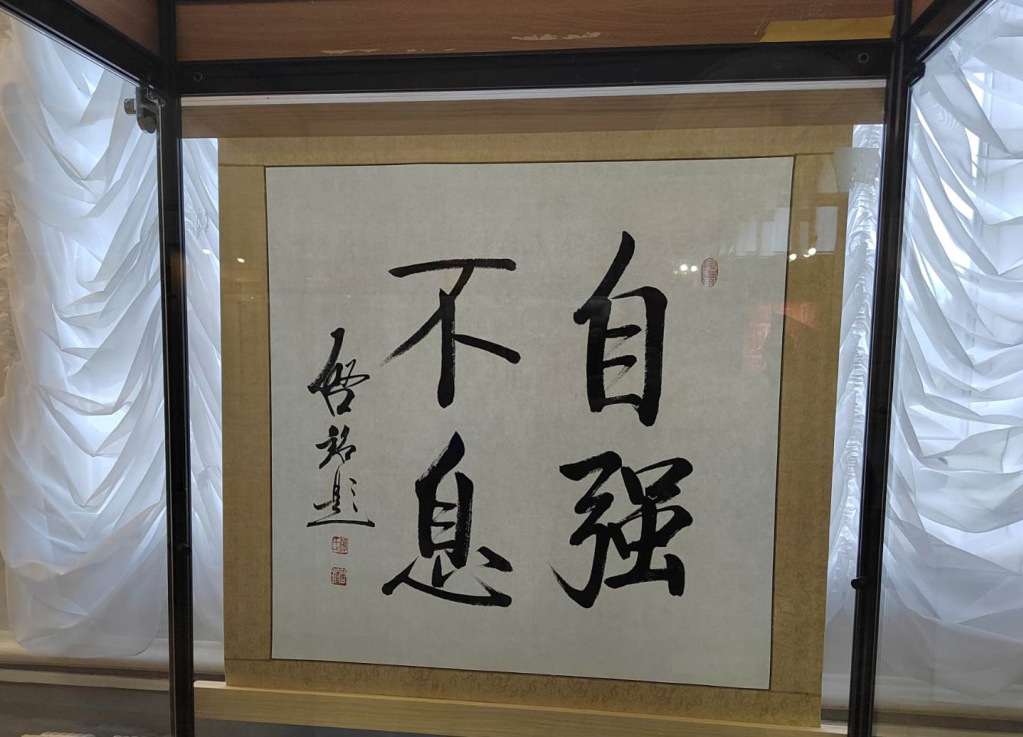 自强
不息
启名题